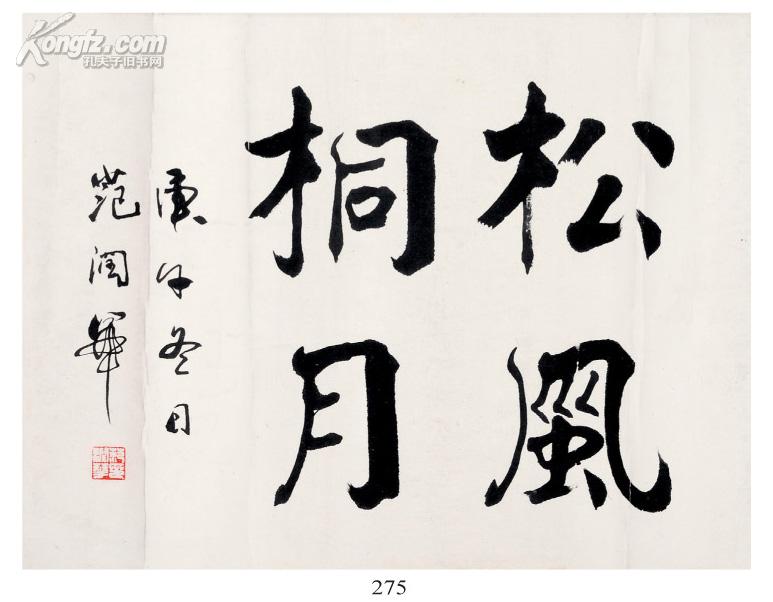 Kongfz.com
孔夫子旧书网
松風
桐月
庚午冬日
范润華
275